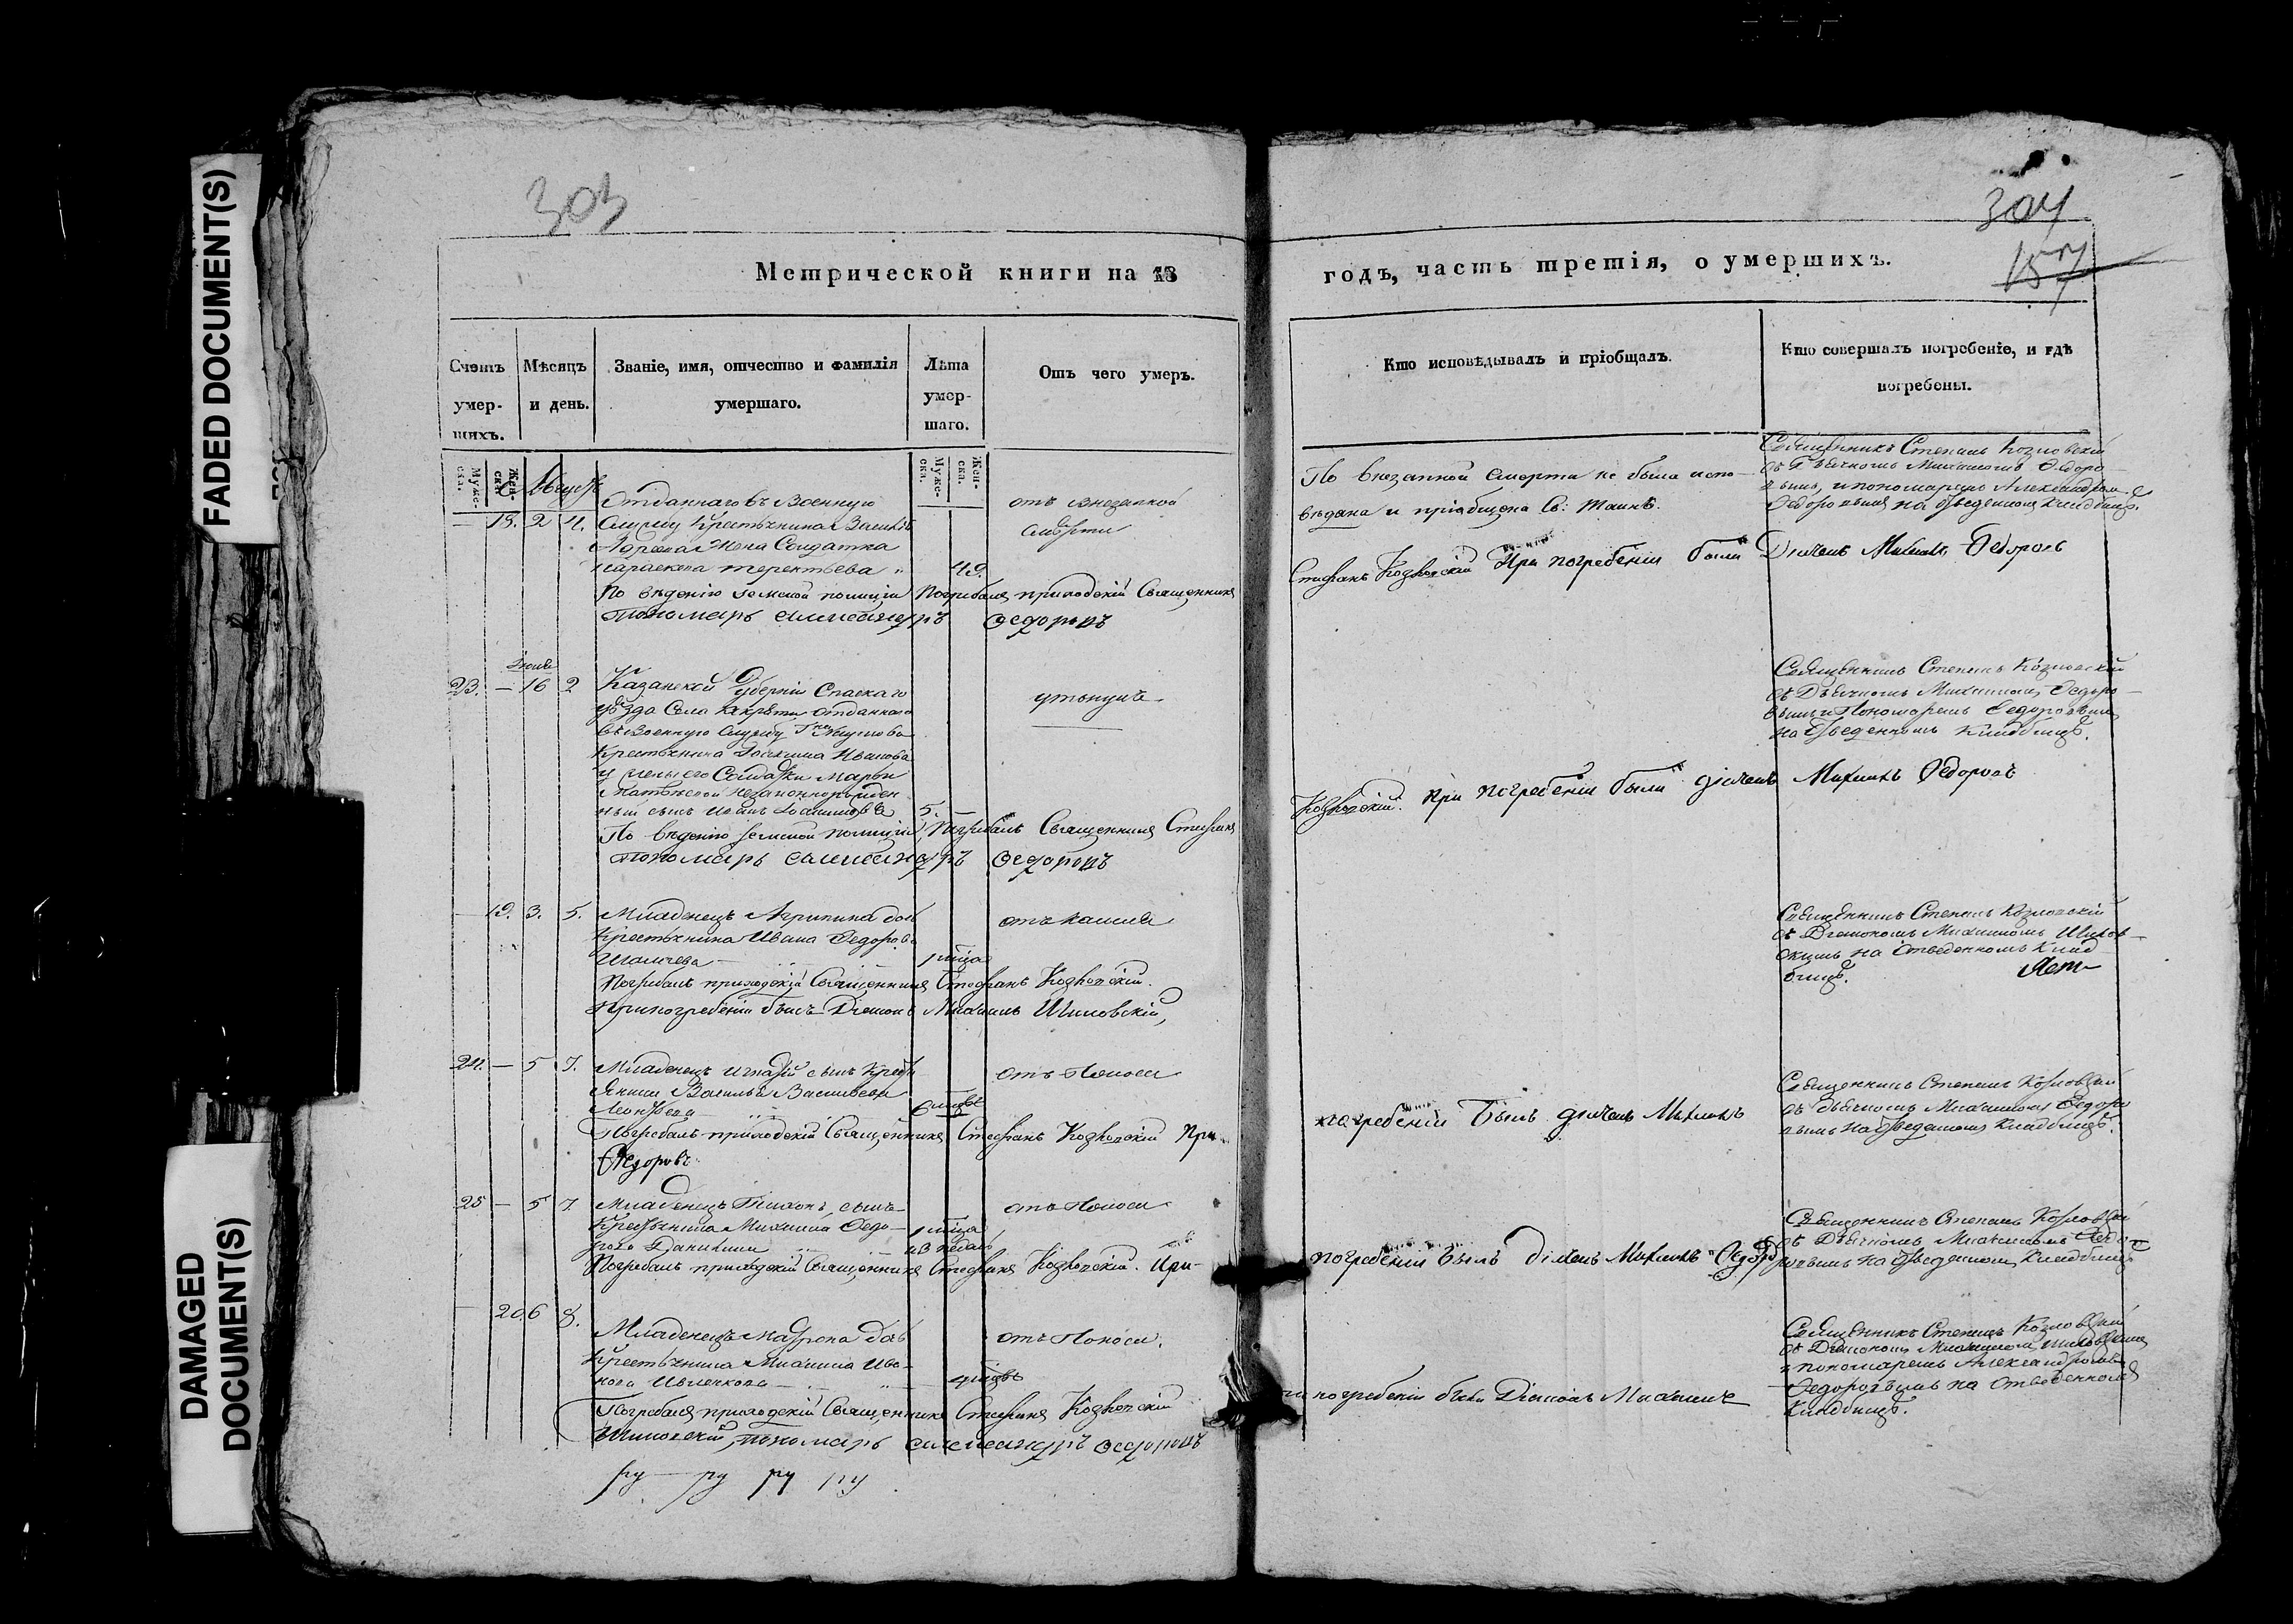 FADED DOCUMENT(S)
DAMAGED
DOCUMENT(S)
303
304
157
Метрической книги на 18
годъ, часть третія, о умершихъ.
Счетъ умер-шихъ.
Мѣсяцъ и день.
Званіе, имя, отчество и фамилія умершаго.
Лѣта умер-шаго.
Отъ чего умеръ.
Кто исповѣдывалъ и пріобщалъ.
Кто совершалъ погребеніе, и гдѣ погребены.
Муже-ска.
Жен-ска.
Муже-ска.
Жен-ска.
18. 2 4.
Отданнаго въ Военную
Службу Крестьянина
жена Солдатка
Параскева Терентьева
49.
отъ внезапной
смерти
По внезапной смерти не была испо-
вѣдана и пріобщена Св: Таинъ.
Священникъ Степанъ Козловскій
съ Дьячкомъ Михаиломъ Ѳедоро-
вымъ, и пономаремъ Александромъ
Ѳедоровымъ на отведенномъ кладбищѣ.
По вѣденію земской полиціи Погребалъ приходскій Священникъ
Стефанъ Козловскій При погребеніи были Дьячекъ Михаилъ Ѳедоровъ
Пономарь Александръ Ѳедоровъ
23. — 16 2
Казанской Губерніи Спаскаго
уѣзда Села отданнаго
въ Военную Службу
Крестьянина Иванова
у жены его Солдатки Марѳы
незаконнорожден-
ный сынъ Иванъ
5.
утонулъ
Священникъ Степанъ Козловскій
съ Дьячкомъ Михаиломъ Ѳедоро-
вымъ и Пономаремъ Ѳедоровымъ
на отведенномъ кладбищѣ.
По вѣденію земской полиціи Погребалъ Священникъ Стефанъ
Козловскій. При погребеніи были дьячекъ Михаилъ Ѳедоровъ
Пономарь Александръ Ѳедоровъ
19. 3. 5.
Младенецъ Агрипина дочь
Крестьянина Ивана Ѳедорова
1 года
отъ кашля
Священникъ Степанъ Козловскій
съ Діакономъ Михаиломъ Шилов-
скимъ на отведенномъ клад-
бищѣ.
Погребалъ приходскій Священникъ Стефанъ Козловскій.
При погребеніи былъ Діаконъ Михаилъ Шиловскій,
24. — 5 7.
Младенецъ Игнатій сынъ Кресть-
янина Василья Васильева
Леонтьева
отъ Поноса
Священникъ Степанъ Козловскій
съ дьячкомъ Михаиломъ Ѳедоро-
вымъ на отведенномъ кладбищѣ.
Погребалъ приходскій Священникъ Стефанъ Козловскій При
погребеніи былъ дьячекъ Михаилъ
Ѳедоровъ
25 — 5 7
Младенецъ Тихонъ, сынъ
Крестьянина Михаила Ѳедо-
рова Данилина
1 года
отъ Поноса
Священникъ Степанъ Козловскій
съ Дьячкомъ Михаиломъ Ѳедо-
ровымъ на отведенномъ кладбищѣ
Погребалъ приходскій Священникъ Стефанъ Козловскій. При-
погребеніи былъ дьячекъ Михаилъ Ѳедоровъ
— 20 6 8.
Младенецъ Матрона дочь
Крестьянина Михаила Ива-
нова
отъ Поноса.
Священникъ Степанъ Козловскій
съ Діакономъ Михаиломъ Шиловскимъ
и пономаремъ Александромъ
Ѳедоровымъ на отведенномъ
кладбищѣ.
Погребалъ приходскій Священникъ Стефанъ Козловскій
погребеніи были Діаконъ Михаилъ
Шиловскій, пономарь Александръ Ѳедоровъ
ру ру ру ру